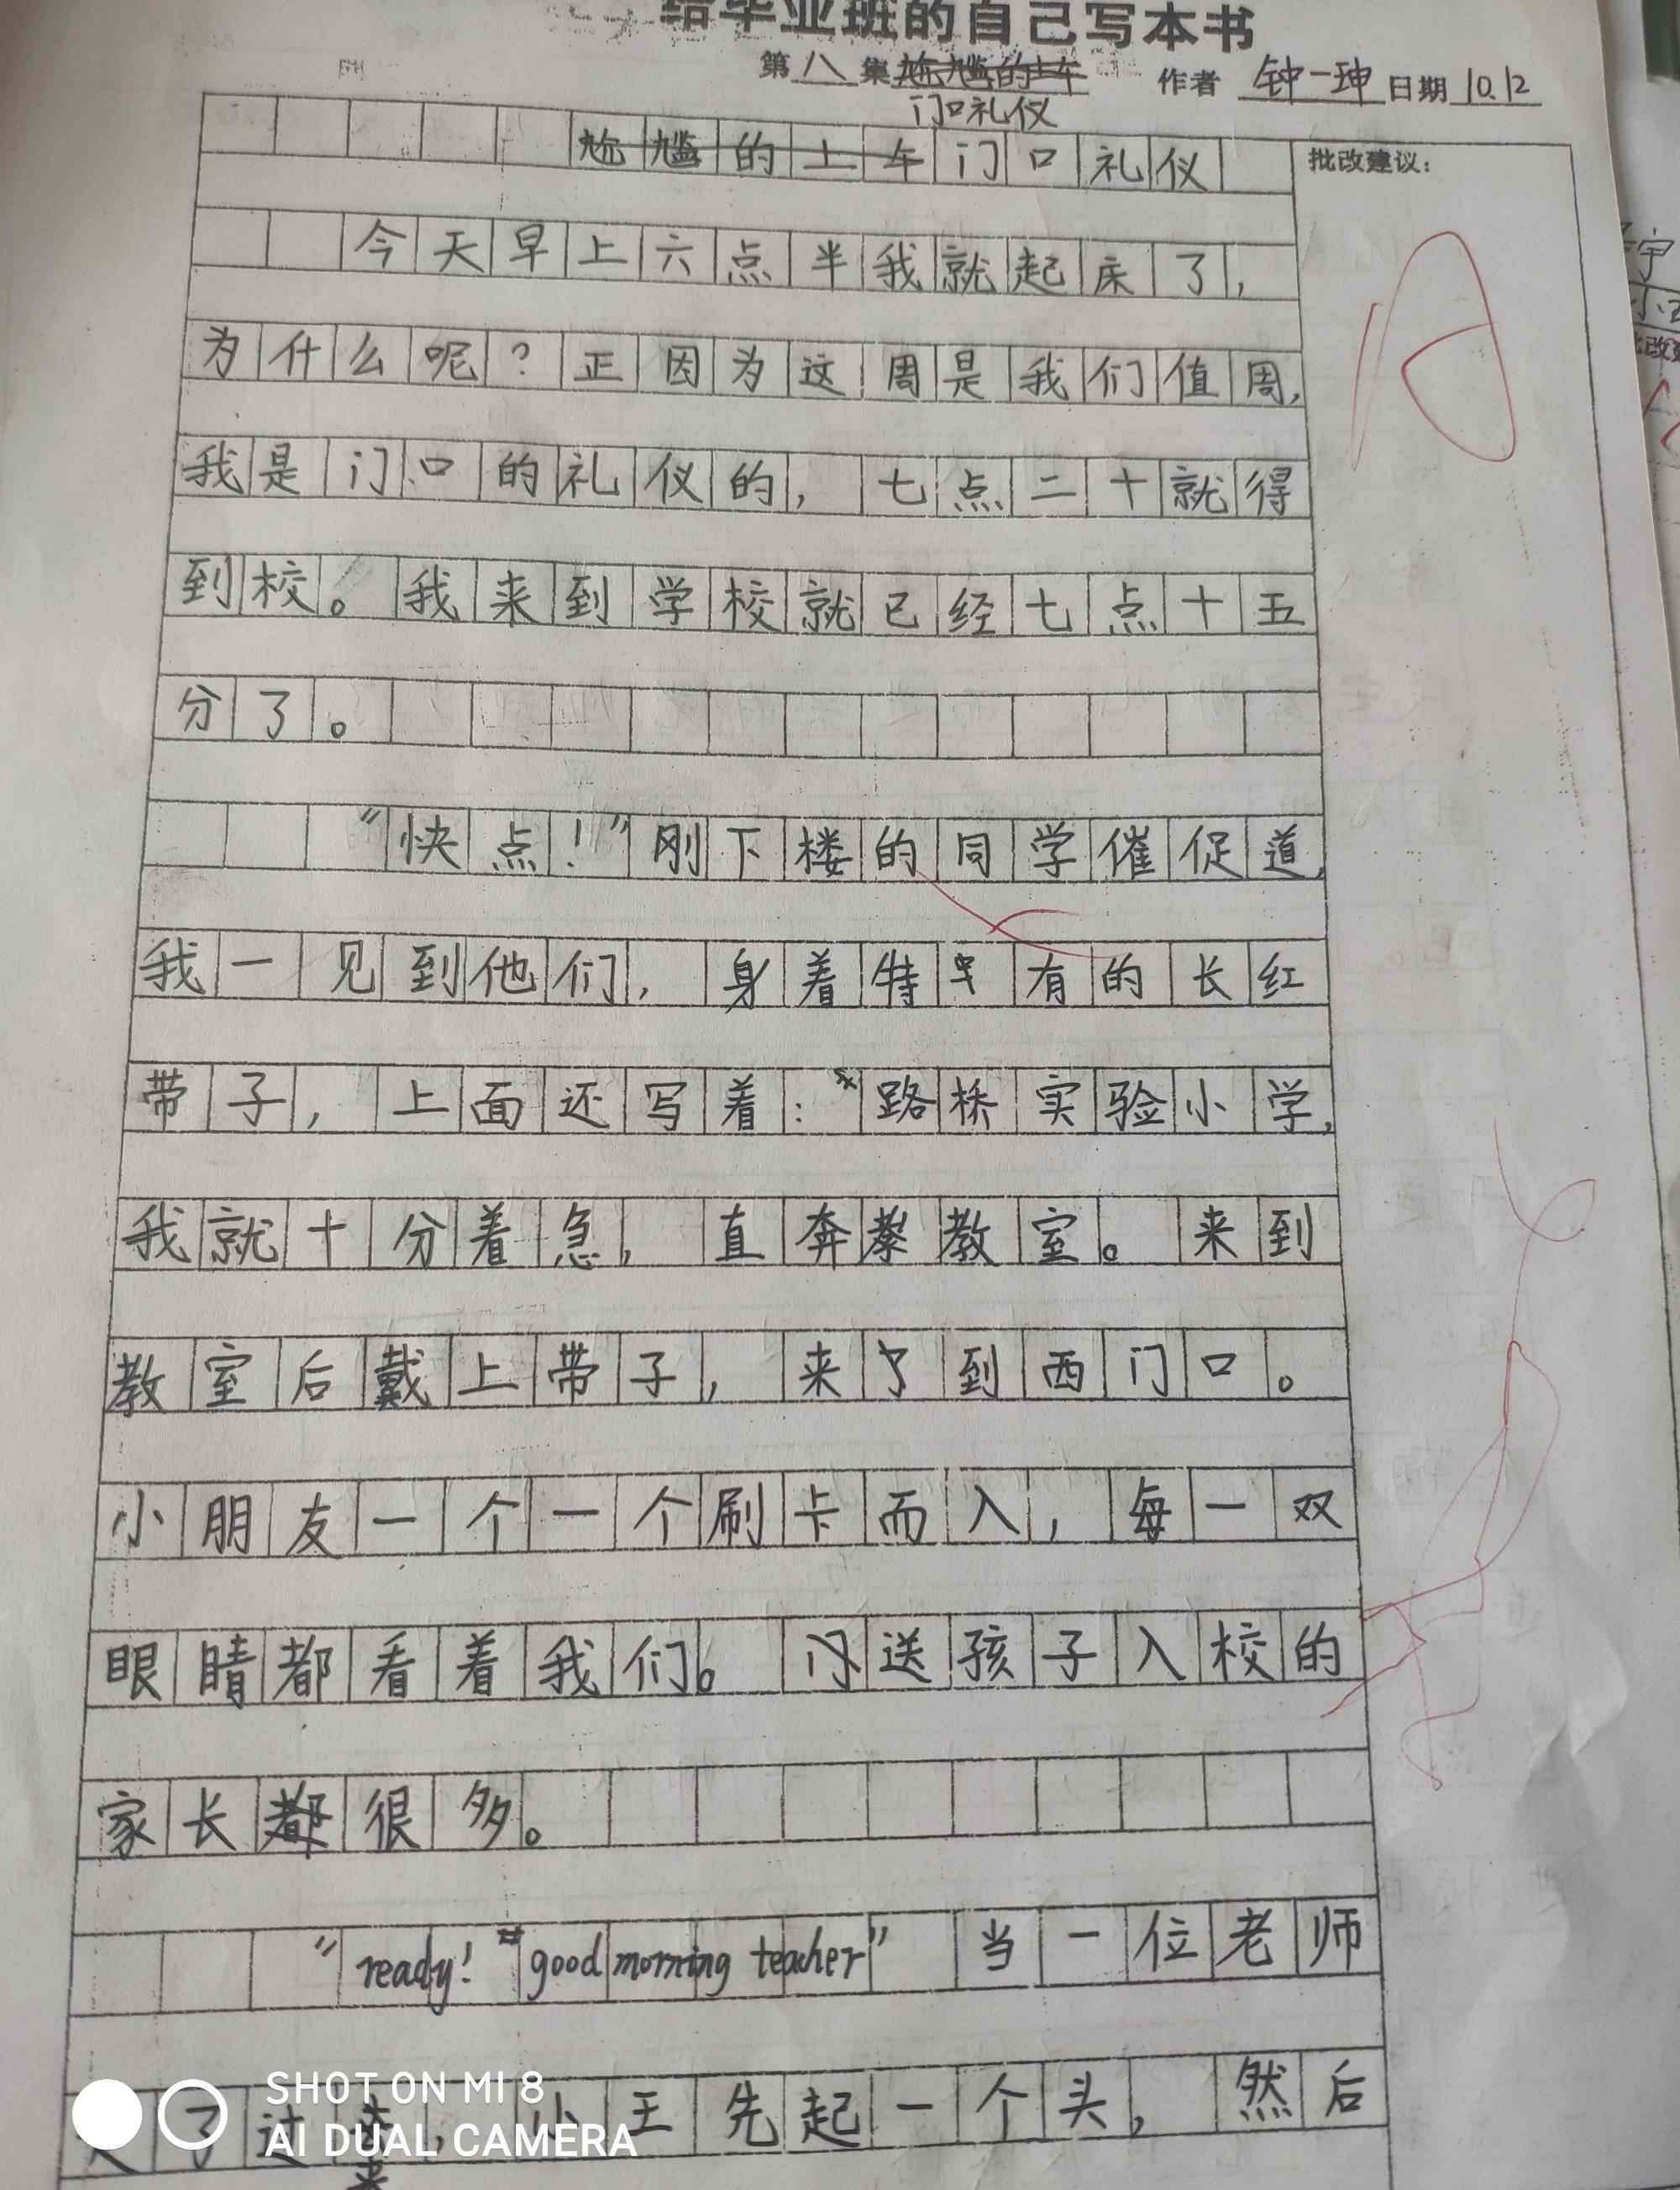 给毕业班的自己写本书
第八集 尴尬的上车 作者 钟一珅 日期 10.12
门口礼仪
尴尬的上车门口礼仪
批改建议：
今天早上六点半我就起床了，
为什么呢？正因为这周是我们值周，
我是门口的礼仪的，七点二十就得
到校。我来到学校就已经七点十五
分了。
“快点！”刚下楼的同学催促道，
我一见到他们，身着特有的长红
带子，上面还写着：“路桥实验小学，
我就十分着急，直奔教室。来到
教室后戴上带子，来到西门口。
小朋友一个一个刷卡而入，每一双
眼睛都看着我们。送孩子入校的
家长都很多。
“ready! good morning teacher”当一位老师
了过来，小王先起一个头，然后
SHOT ON MI 8
AI DUAL CAMERA